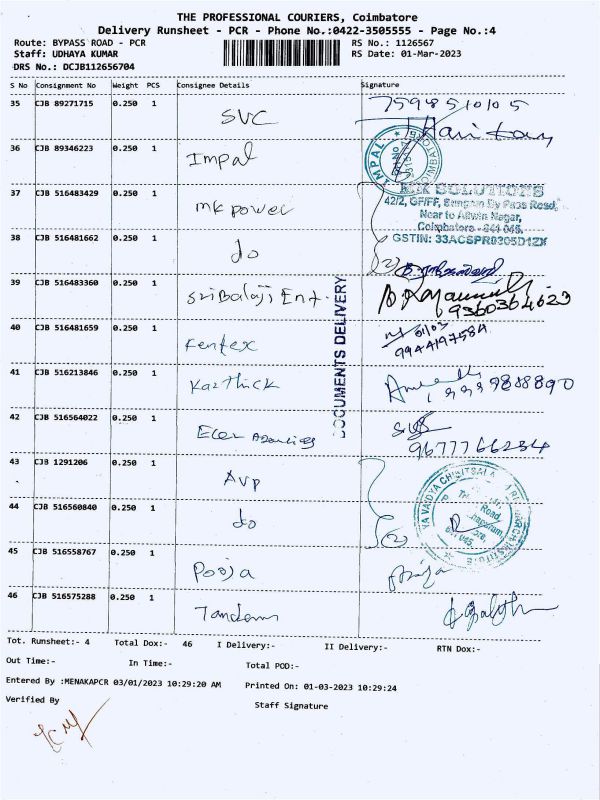 THE PROFESSIONAL COURIERS, Coimbatore
Delivery Runsheet - PCR - Phone No.:0422-3505555 - Page No.:4
Route: BYPASS ROAD - PCR RS No.: 1126567
Staff: UDHAYA KUMAR RS Date: 01-Mar-2023
DRS No.: DCJB112656704
S No Consignment No Weight PCS Consignee Details Signature
35 CJB 89271715 0.250 1 SVC 7598510105
36 CJB 89346223 0.250 1 Impal IMPAL
37 CJB 516483429 0.250 1 mk power MK SOLUTIONS
42/2, GF/FF, Sungam By Pass Road,
Near to Alwin Nagar,
Coimbatore - 641 045.
38 CJB 516481662 0.250 1 do GSTIN: 33ACSPR0305D1ZX
39 CJB 516483360 0.250 1 Sri Balaji Ent. 9360364623
DOCUMENTS DELIVERY
40 CJB 516481659 0.250 1 Fentex 01/03
9944197584
41 CJB 516213846 0.250 1 Karthick
42 CJB 516564022 0.250 1 Agencies
9677766284
43 CJB 1291206 0.250 1 AVP
44 CJB 516560840 0.250 1 do
45 CJB 516558767 0.250 1 Pooja
46 CJB 516575288 0.250 1 Tandem
Tot. Runsheet:- 4 Total Dox:- 46 I Delivery:- II Delivery:- RTN Dox:-
Out Time:- In Time:- Total POD:-
Entered By :MENAKAPCR 03/01/2023 10:29:20 AM Printed On: 01-03-2023 10:29:24
Verified By Staff Signature